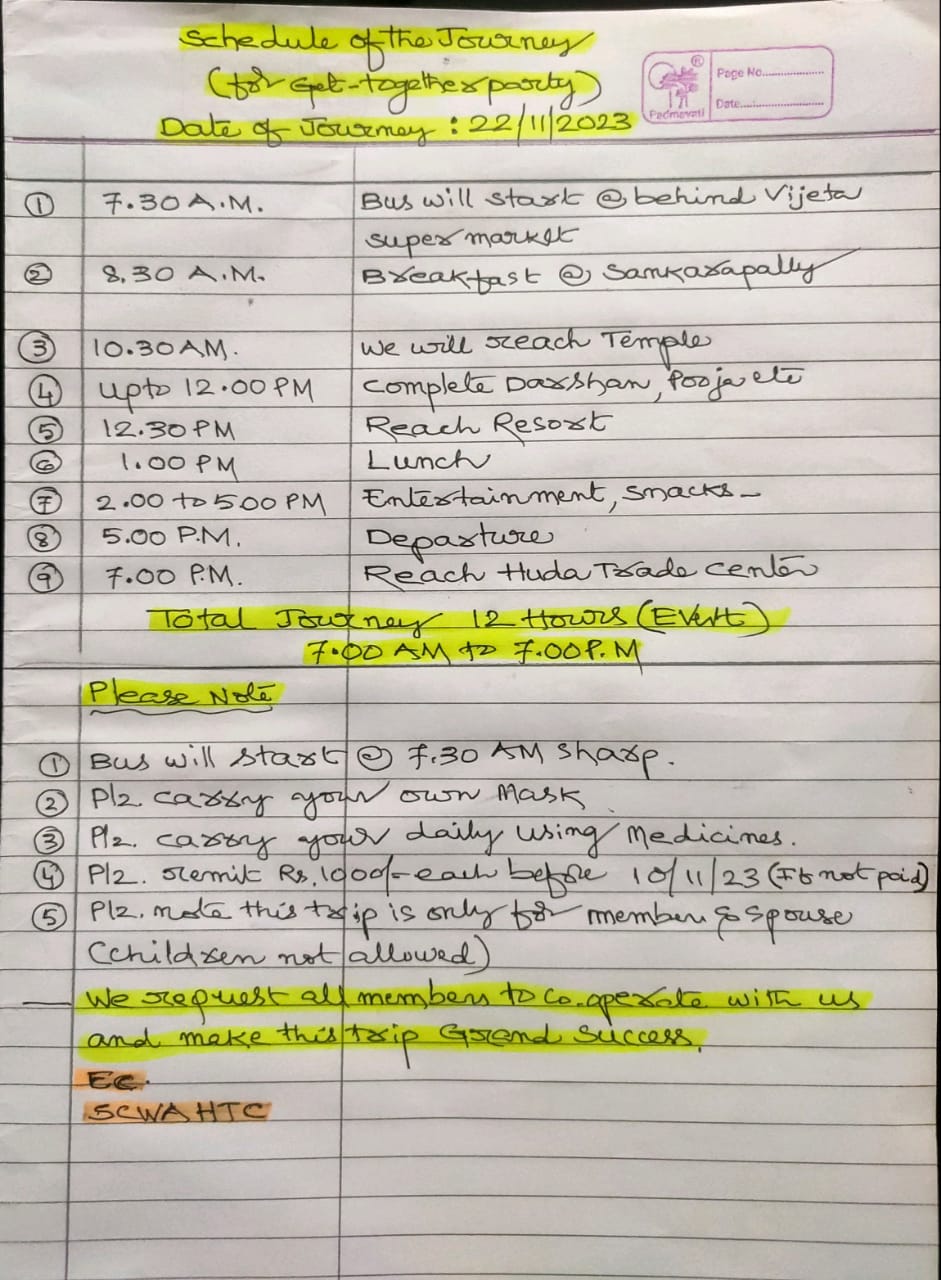 Schedule of the Journey
(for Get-together party)
Date of Journey : 22/11/2023
Padmavati ® Page No.....................
Date.....................
① 7.30 A.M. Bus will start @ behind Vijeta
super market
② 8.30 A.M. Breakfast @ Sankarapally
③ 10.30 AM. We will reach Temple
④ upto 12.00 PM Complete Darshan, Pooja etc
⑤ 12.30 PM Reach Resort
⑥ 1.00 PM Lunch
⑦ 2.00 to 5.00 PM Entertainment, snacks-
⑧ 5.00 P.M. Departure
⑨ 7.00 P.M. Reach Huda Trade center
Total Journey 12 Hours (Event)
7.00 AM to 7.00 P.M
Please Note
① Bus will start @ 7.30 AM sharp.
② Plz. carry your own Mask.
③ Plz. carry your daily using Medicines.
④ Plz. remit Rs. 1000/- each before 10/11/23 (If not paid)
⑤ Plz. note this trip is only for member & spouse
(children not allowed)
We request all members to co-operate with us
and make this trip Grend Success.
EC.
SCWA HTC